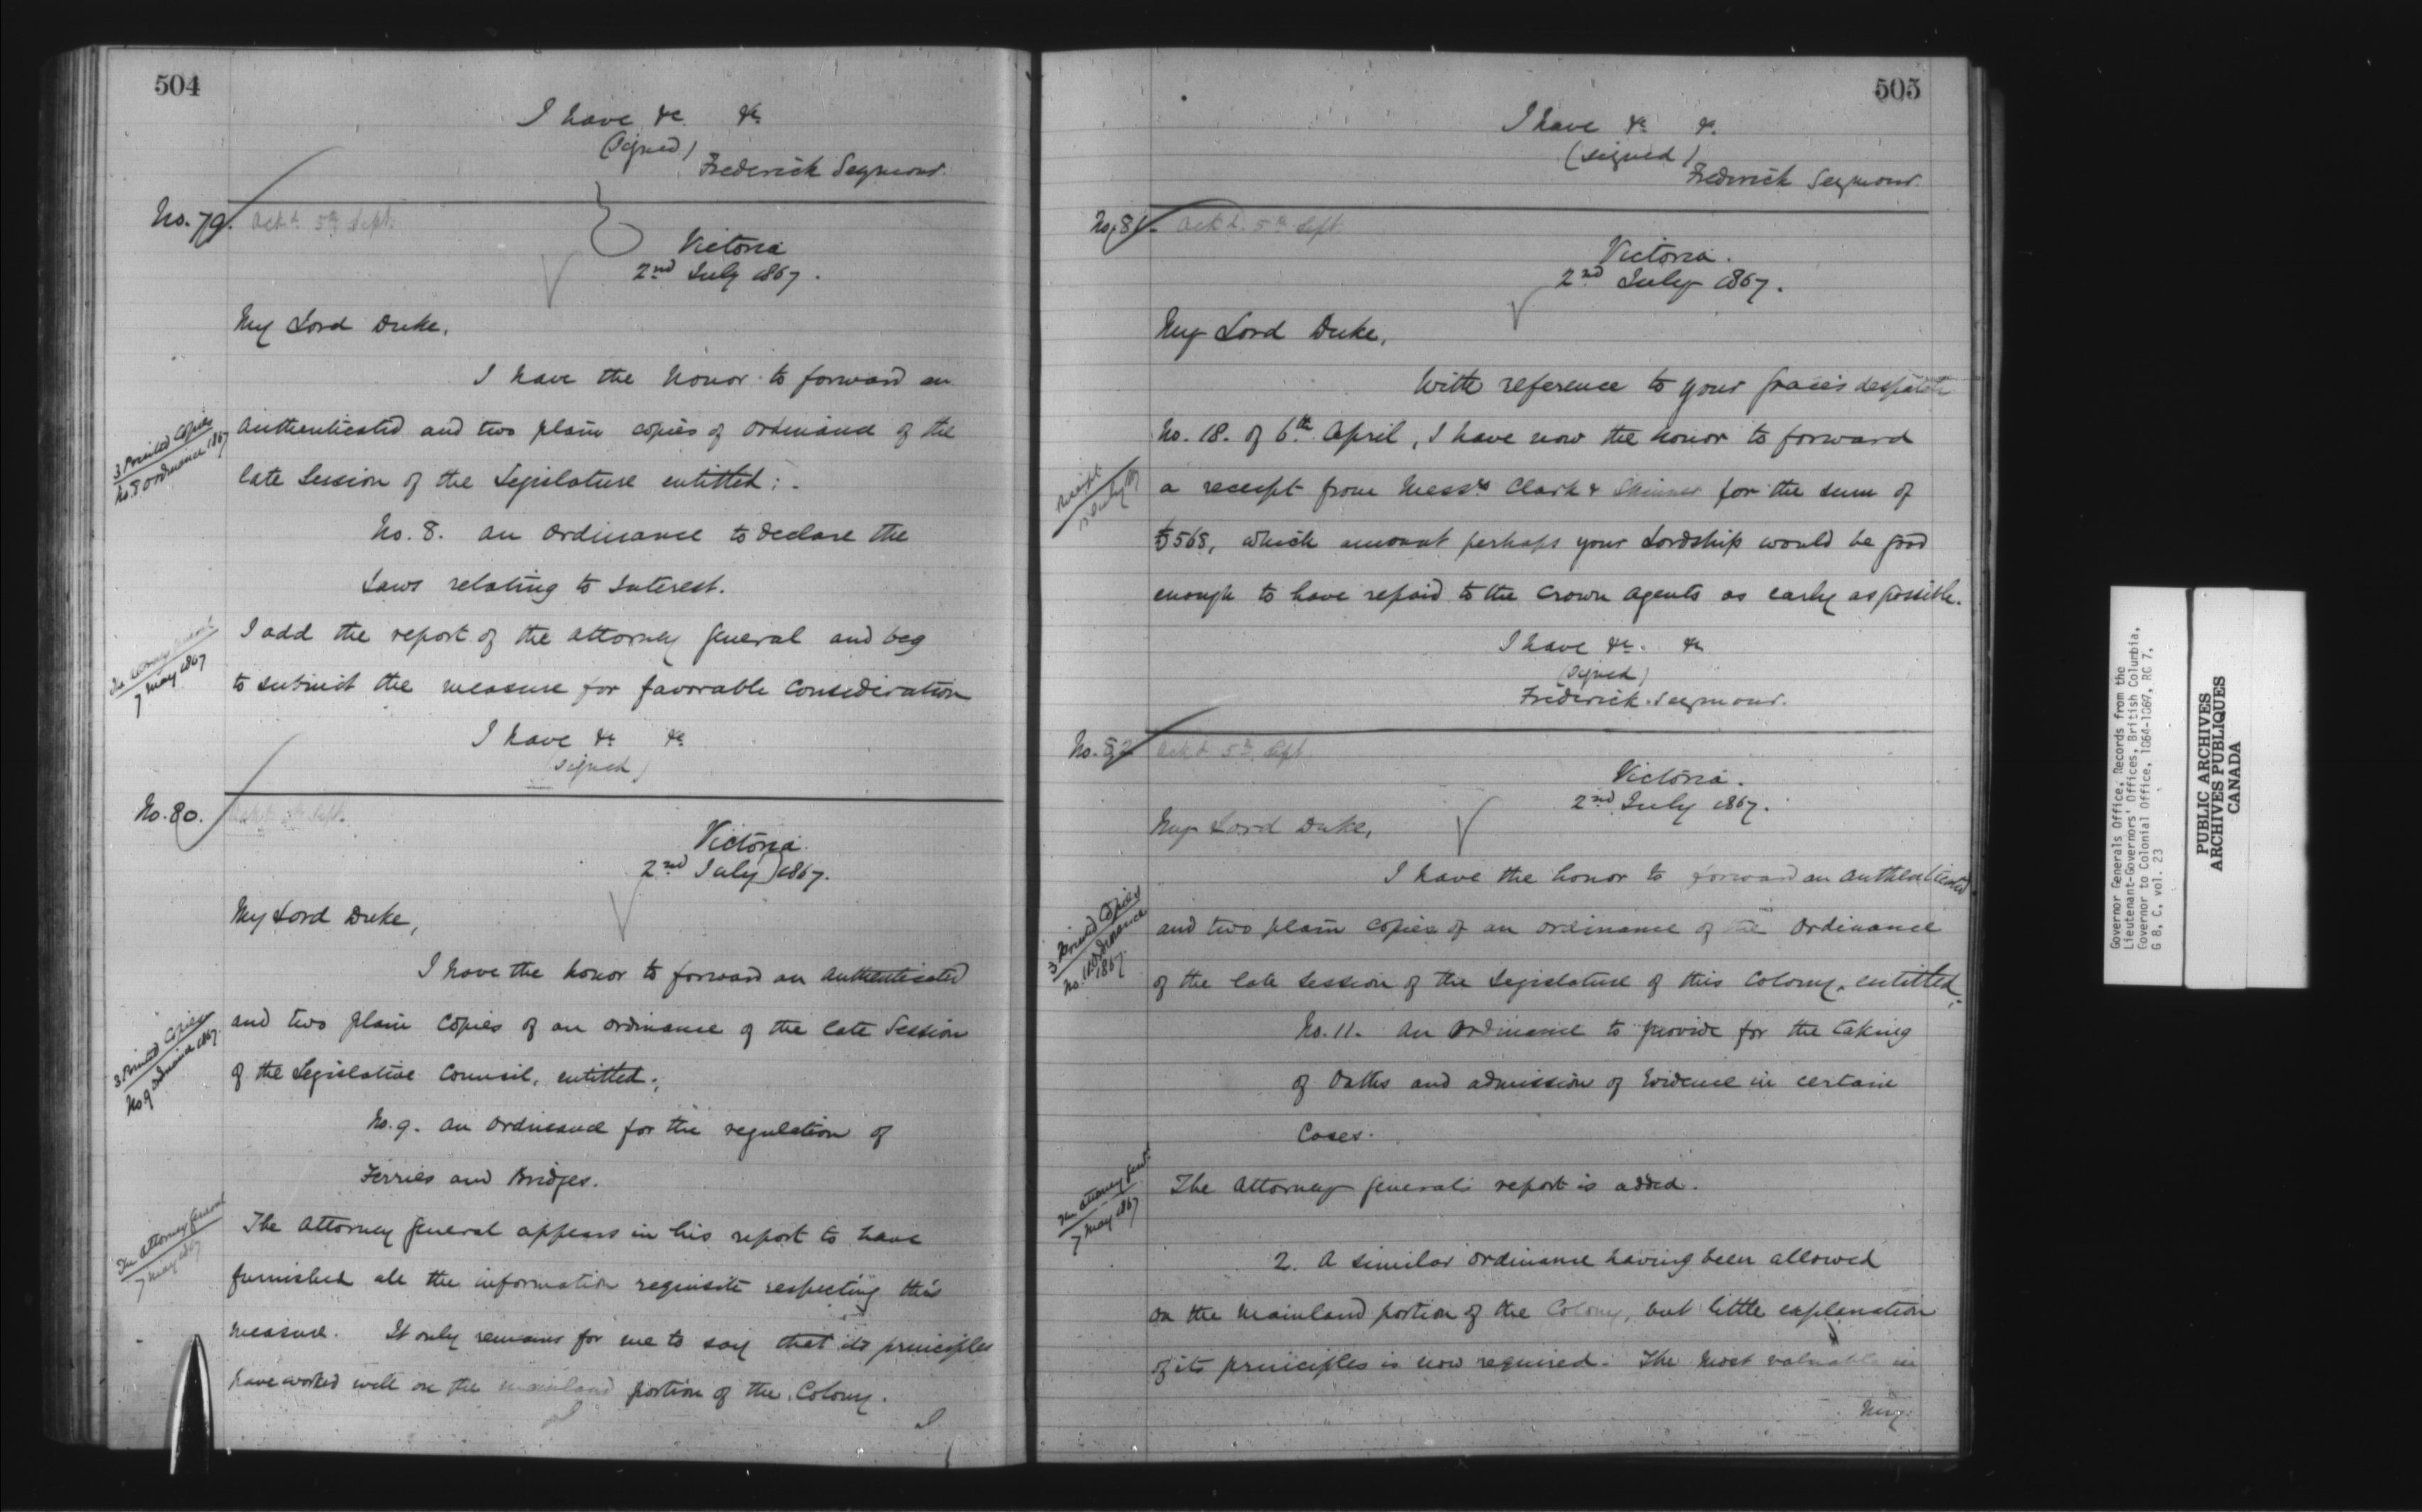 504
I have &c &c
(Signed)
Frederick Seymour.
No. 79. Ackd. 5th Sept.
Victoria
2nd July 1867.
My Lord Duke,
I have the honor to forward an
3 Printed Copies
No. 8 Ordinance 1867
authenticated and two plain copies of Ordinance of the
late Session of the Legislature entitled:-
No. 8. An Ordinance to declare the
Laws relating to Interest.
The Attorney General
7 May 1867
I add the report of the Attorney General and beg
to submit the measure for favorable consideration
I have &c &c
(signed)
No. 80. Ackd. 5th Sept.
Victoria.
2nd July 1867.
My Lord Duke,
I have the honor to forward an authenticated
3 Printed Copies
No 9 Ordinance 1867
and two plain copies of an ordinance of the late Session
of the Legislative Council, entitled:
No. 9. An Ordinance for the regulation of
Ferries and Bridges.
The Attorney General
7 May 1867
The Attorney General appears in his report to have
furnished all the information requisite respecting this
measure. It only remains for me to say that its principles
have worked well on the mainland portion of the Colony.
I
505
I have &c &c.
(signed)
Frederick Seymour.
No. 81. Ackd. 5th Sept.
Victoria.
2nd July 1867.
My Lord Duke,
With reference to your Grace's despatch
No. 18. of 6th April, I have now the honor to forward
Receipt
a receipt from Messrs Clark & Skinner for the sum of
which amount perhaps your Lordship would be good
enough to have repaid to the Crown Agents as early as possible.
I have &c. &c
(signed)
Frederick Seymour.
No. 82 Ackd 5th Sept.
Victoria.
2nd July 1867.
My Lord Duke,
I have the honor to forward an authenticated
3 Printed Copies
No. 11 Ordinance
1867.
and two plain copies of an ordinance of the Ordinance
of the late Session of the Legislature of this Colony, entitled:
No. 11. An Ordinance to provide for the taking
of Oaths and admission of Evidence in certain
Cases.
The Attorney Genl.
7 May 1867
The Attorney General's report is added.
2. A similar ordinance having been allowed
on the mainland portion of the Colony, but little explanation
of its principles is now required. The most valuable in
my
Governor Generals Office, Records from the
Lieutenant-Governors' Offices, British Columbia,
Governor to Colonial Office, 1864-1867, RG 7,
G 8, C, vol. 23
PUBLIC ARCHIVES
ARCHIVES PUBLIQUES
CANADA